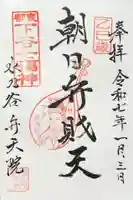 奉拝
乙巳歳
令和七年一月三日
朝日弁財天
東都
下谷七福神
水乃谷
弁天院